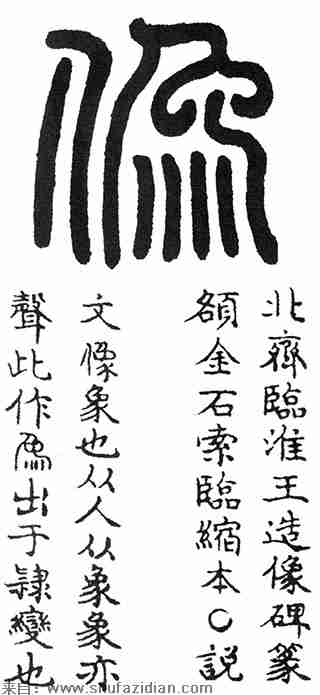 像
北齊臨淮王造像碑篆
額金石索臨縮本〇説
文像象也从人从象象亦
聲此作出于隸變也
来自：www.shufazidian.com